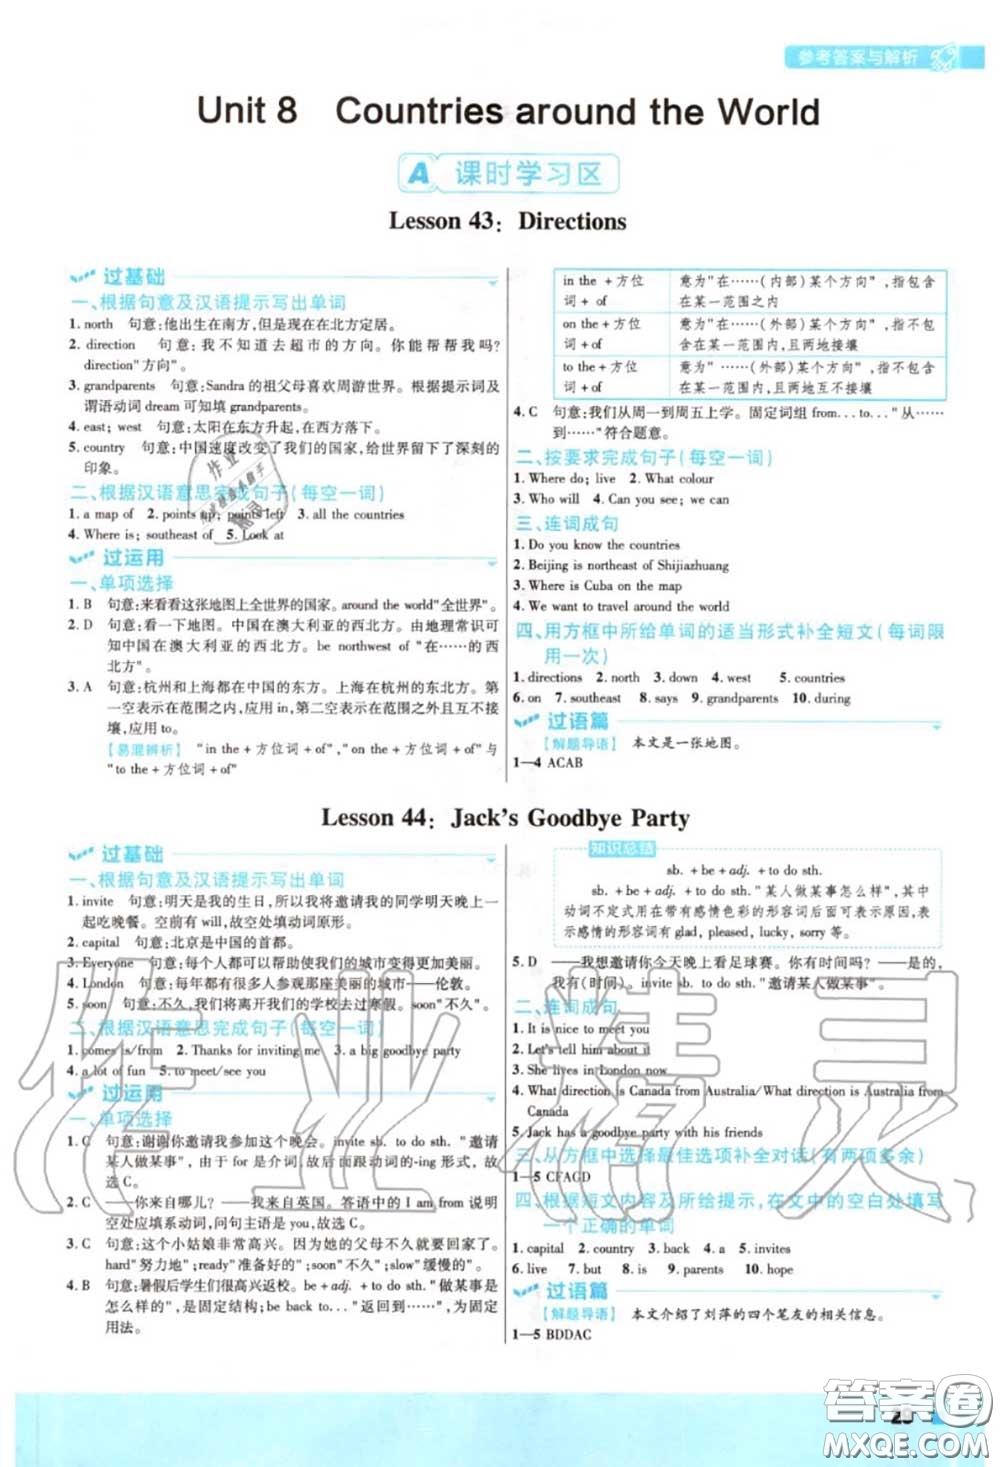 参考答案与解析
Unit 8 Countries around the World
A 课时学习区
Lesson 43: Directions
过基础
一、根据句意及汉语提示写出单词
1. north 句意:他出生在南方,但是现在在北方定居。
2. direction 句意:我不知道去超市的方向。你能帮帮我吗?
direction"方向"。
3. grandparents 句意:Sandra 的祖父母喜欢周游世界。根据提示词及
谓语动词 dream 可知填 grandparents。
4. east; west 句意:太阳在东方升起,在西方落下。
5. country 句意:中国速度改变了我们的国家,给世界留下了深刻的
印象。
二、根据汉语意思完成句子(每空一词)
1. a map of 2. points up; points left 3. all the countries
4. Where is; southeast of 5. Look at
过运用
一、单项选择
1. B 句意:来看看这张地图上全世界的国家。around the world"全世界"。
2. D 句意:看一下地图。中国在澳大利亚的西北方。由地理常识可
知中国在澳大利亚的西北方。be northwest of "在……的西
北方"。
3. A 句意:杭州和上海都在中国的东方。上海在杭州的东北方。第
一空表示在范围之内,应用 in,第二空表示在范围之外且互不接
壤,应用 to。
【易混辨析】 "in the + 方位词 + of","on the + 方位词 + of"与
"to the + 方位词 + of"
in the + 方位
词 + of
意为"在……(内部)某个方向",指包含
在某一范围之内
on the + 方位
词 + of
意为"在……(外部)某个方向",指不包
含在某一范围内,且两地接壤
to the + 方位
词 + of
意为" ……(外部)某个方向",指不包
含在某一范围内,且两地互不接壤
4. C 句意:我们从周一到周五上学。固定词组 from... to... "从……
到……"符合题意。
二、按要求完成句子(每空一词)
1. Where do; live 2. What colour
3. Who will 4. Can you see; we can
三、连词成句
1. Do you know the countries
2. Beijing is northeast of Shijiazhuang
3. Where is Cuba on the map
4. We want to travel around the world
四、用方框中所给单词的适当形式补全短文(每词限
用一次)
1. directions 2. north 3. down 4. west 5. countries
6. on 7. southeast 8. says 9. grandparents 10. during
过语篇
【解题导语】 本文是一张地图。
1—4 ACAB
Lesson 44: Jack's Goodbye Party
过基础
一、根据句意及汉语提示写出单词
1. invite 句意:明天是我的生日,所以我将邀请我的同学明天晚上一
起吃晚餐。空前有 will,故空处填动词原形。
2. capital 句意:北京是中国的首都。
3. Everyone 句意:每个人都可以让我们的城市变得更加美丽。
4. London 句意:每年都有很多人参观那座美丽的城市——伦敦。
5. soon 句意:不久,我们将离开我们的学校去过寒假。soon"不久"。
二、根据汉语意思完成句子(每空一词)
1. comes is/from 2. Thanks for inviting me 3. a big goodbye party
4. a lot of fun 5. to meet/see you
过运用
一、单项选择
1. C 句意:谢谢你邀请我参加这个晚会。invite sb. to do sth. "邀请
某人做某事",由于 for 是介词,故后面跟动词的-ing 形式,故
选 C。
2. C ——你来自哪儿?——我来自英国。答语中的 I am from 说明
空处应填系动词,问句主语是 you,故选 C。
3. C 句意:这个小姑娘非常高兴。因为她的父母不久就要回家了。
hard"努力地";ready"准备好的";soon"不久";slow"缓慢的"。
4. B 句意:暑假后学生们很高兴返校。be + adj. + to do sth. "做某事是
怎么样的",是固定结构;be back to... "返回到……",为固定
用法。
知识总结
sb. + be + adj. + to do sth.
sb. + be + adj. + to do sth. "某人做某事怎么样",其中
动词不定式用在带有感情色彩的形容词后面可表示原因,表
示感情的形容词有 glad, pleased, lucky, sorry 等。
5. D ——我想邀请你今天晚上看足球赛。你有时间吗?——是的,
我有(时间)。invite sb. to do sth. "邀请某人做某事"。
二、连词成句
1. It is nice to meet you
2. Let's tell him about it
3. She lives in London now
4. What direction is Canada from Australia/What direction is Australia from
Canada
5. Jack has a goodbye party with his friends
三、从方框中选择最佳选项补全对话(有两项多余)
1—5 CFAGD
四、根据短文内容及所给提示,在文中的空白处填写
一个正确的单词
1. capital 2. country 3. back 4. a 5. invites
6. live 7. but 8. is 9. parents 10. hope
过语篇
【解题导语】 本文介绍了刘萍的四个笔友的相关信息。
1—5 BDDAC
29
答案圈
MXQE.COM
作业精灵